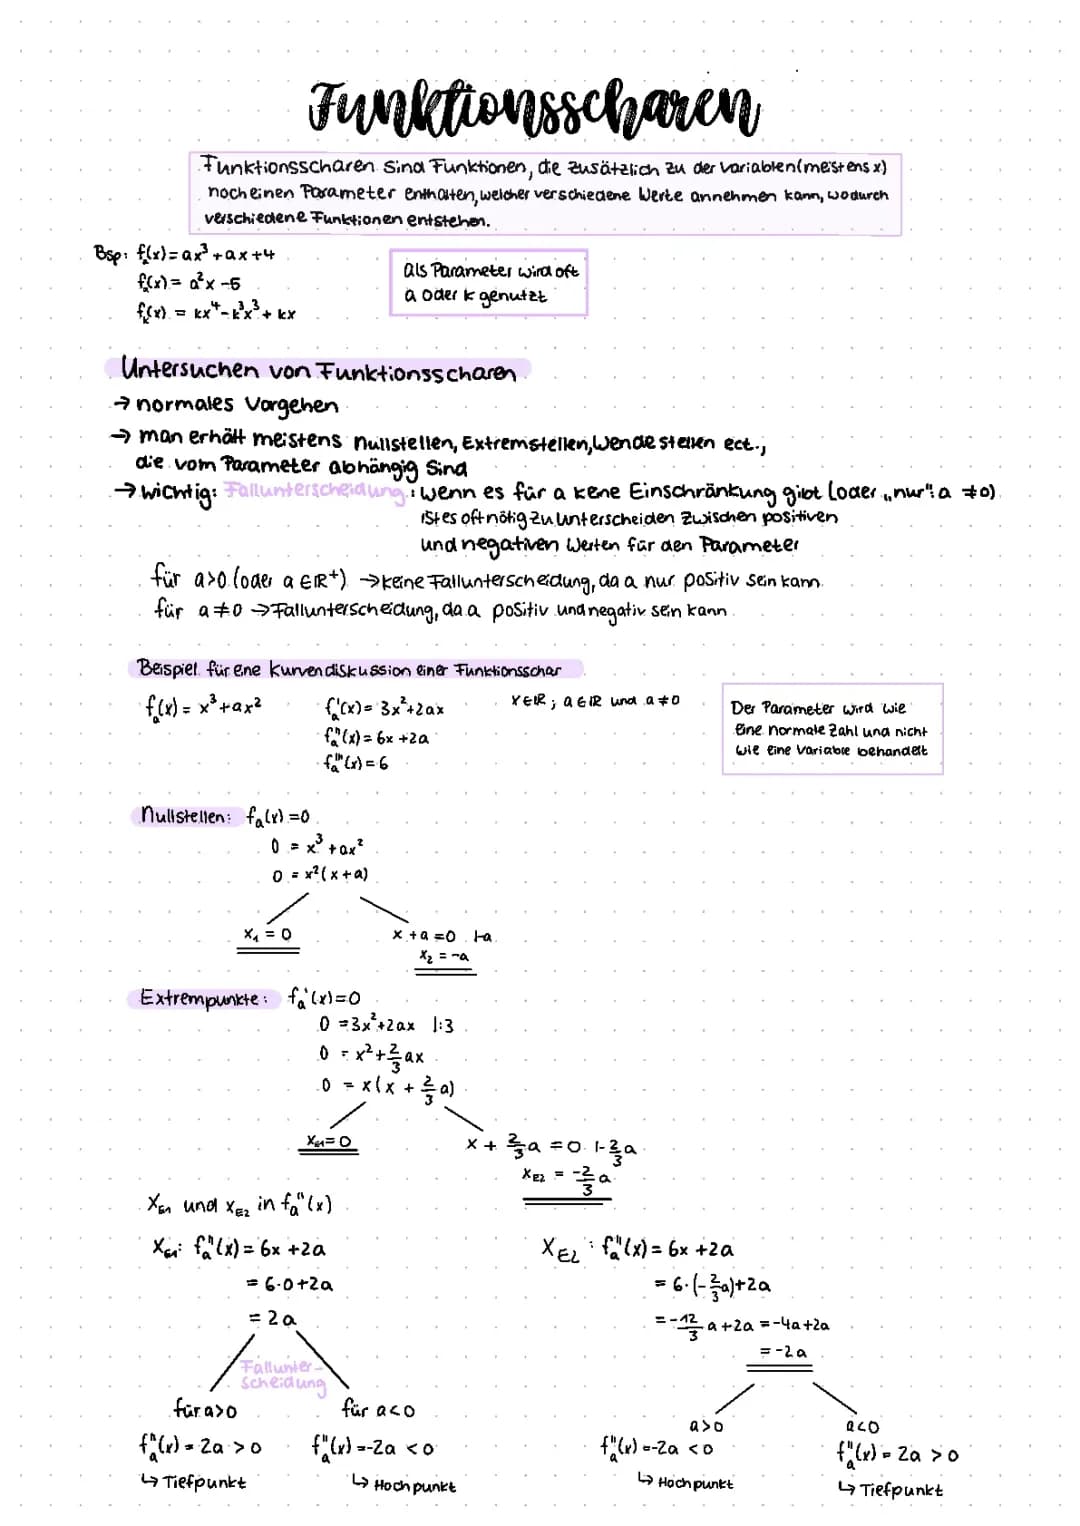 Funktionsscharen
Funktionsscharen sind Funktionen, die zusätzlich zu der Variablen (meistens x)
noch einen Parameter enthalten, welcher verschiedene Werte annehmen kann, wodurch
verschiedene Funktionen entstehen.
Bsp: fₐ(x) = ax³ + ax + 4
fₐ(x) = a²x - 5
fₖ(x) = kx⁴ - k³x³ + kx
als Parameter wird oft
a oder k genutzt
Untersuchen von Funktionsscharen
→ normales Vorgehen
→ man erhält meistens Nullstellen, Extremstellen, Wendestellen ect.,
die vom Parameter abhängig sind
→ wichtig: Fallunterscheidung: wenn es für a kene Einschränkung gibt (oder „nur": a ≠ 0)
ist es oft nötig zu unterscheiden zwischen positiven
und negativen Werten für den Parameter
für a>0 (oder a ∈ ℝ⁺) → keine Fallunterscheidung, da a nur positiv sein kann.
für a ≠ 0 → Fallunterscheidung, da a positiv und negativ sein kann
Beispiel für eine Kurvendiskussion einer Funktionsschar
fₐ(x) = x³ + ax²
fₐ'(x) = 3x² + 2ax
fₐ''(x) = 6x + 2a
fₐ'''(x) = 6
x ∈ ℝ ; a ∈ ℝ und a ≠ 0
Der Parameter wird wie
eine normale Zahl und nicht
wie eine Variable behandelt
Nullstellen: fₐ(x) = 0
0 = x³ + ax²
0 = x²(x + a)
x₁ = 0
x + a = 0 |-a
x₂ = -a
Extrempunkte: fₐ'(x) = 0
0 = 3x² + 2ax |:3
0 = x² + 2/3 ax
0 = x(x + 2/3 a)
x_E1 = 0
x + 2/3 a = 0 |- 2/3 a
x_E2 = -2/3 a
x_E1 und x_E2 in fₐ''(x)
x_E1: fₐ''(x) = 6x + 2a
= 6·0 + 2a
= 2a
Fallunter-
scheidung
für a>0
fₐ''(x) = 2a > 0
↳ Tiefpunkt
für a<0
fₐ''(x) = -2a < 0
↳ Hochpunkt
x_E2: fₐ''(x) = 6x + 2a
= 6·(-2/3 a) + 2a
= -12/3 a + 2a = -4a + 2a
= -2a
a>0
fₐ''(x) = -2a < 0
↳ Hochpunkt
a<0
fₐ''(x) = 2a > 0
↳ Tiefpunkt